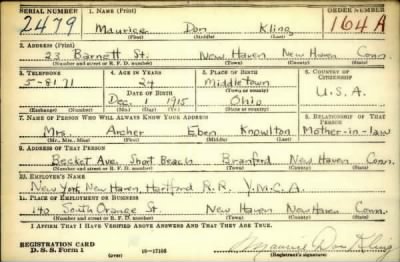 SERIAL NUMBER 1. NAME (Print) ORDER NUMBER
2479 Maurice Don Kling 164A
(First) (Middle) (Last)
2. ADDRESS (Print)
23 Barnett St. New Haven New Haven Conn.
(Number and street or R. F. D. number) (Town) (County) (State)
3. TELEPHONE 4. AGE IN YEARS 5. PLACE OF BIRTH 6. COUNTRY OF CITIZENSHIP
5-8171 24 Middletown
DATE OF BIRTH (Town or county) U.S.A.
Dec. 1 1915 Ohio
(Exchange) (Number) (Mo.) (Day) (Yr.) (State or country)
7. NAME OF PERSON WHO WILL ALWAYS KNOW YOUR ADDRESS 8. RELATIONSHIP OF THAT PERSON
Mrs. Archer Eben Knowlton Mother-in-law
(Mr., Mrs., Miss) (First) (Middle) (Last)
9. ADDRESS OF THAT PERSON
Becket Ave. Short Beach Branford New Haven Conn.
(Number and street or R. F. D. number) (Town) (County) (State)
10. EMPLOYER'S NAME
New York, New Haven, Hartford R.R. Y.M.C.A.
11. PLACE OF EMPLOYMENT OR BUSINESS
140 South Orange St. New Haven New Haven Conn.
(Number and street or R. F. D. number) (Town) (County) (State)
I AFFIRM THAT I HAVE VERIFIED ABOVE ANSWERS AND THAT THEY ARE TRUE.
REGISTRATION CARD
D. S. S. Form 1 (over) 16-17105 Maurice Don Kling
(Registrant's signature)